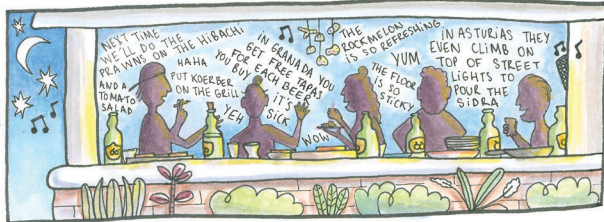 NEXT TIME
WE'LL DO THE
PRAWNS ON THE HIBACHI
AND A
TOMATO
SALAD
HAHA
PUT KOERBER
ON THE GRILL
YEH
IN GRANADA YOU
GET FREE TAPAS
FOR EACH BEER
YOU BUY
IT'S
SICK
WOW
THE
ROCKMELON
IS SO REFRESHING
YUM
THE FLOOR
IS SO
STICKY
IN ASTURIAS THEY
EVEN CLIMB ON
TOP OF STREET
LIGHTS TO
POUR THE
SIDRA